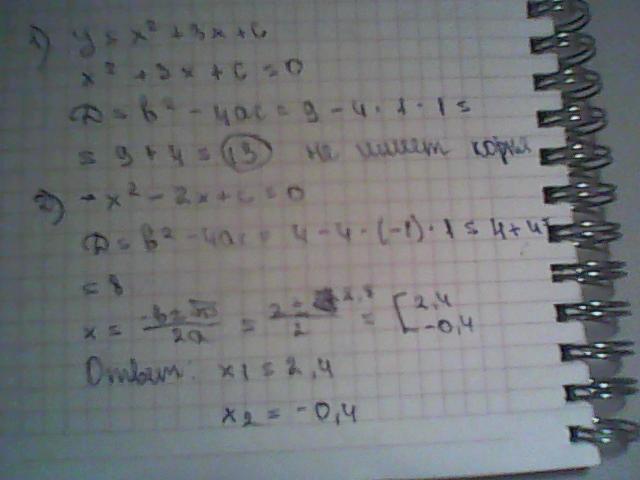 1) y = x² + 3x + c
x² + 3x + c = 0
D = b² - 4ac = 9 - 4 · 1 · 1 =
= 9 + 4 = 13 не имеет корня
2) -x² - 2x + c = 0
D = b² - 4ac = 4 - 4 · (-1) · 1 = 4 + 4 =
= 8
x = (-b ± √D)/2a = (2 ± 2,8)/2 = [2,4 -0,4
Ответ: x1 = 2,4
x2 = -0,4